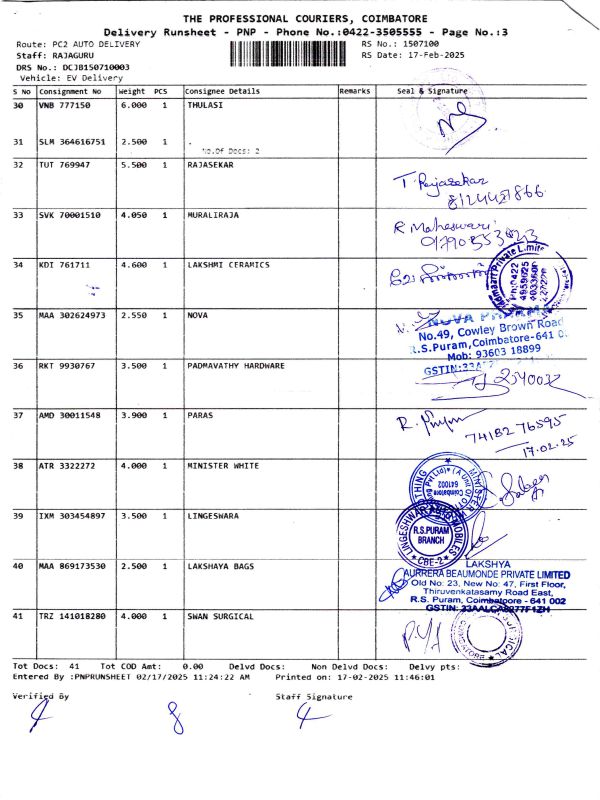 THE PROFESSIONAL COURIERS, COIMBATORE
Delivery Runsheet - PNP - Phone No.:0422-3505555 - Page No.:3
Route: PC2 AUTO DELIVERY RS No.: 1507100
Staff: RAJAGURU RS Date: 17-Feb-2025
DRS No.: DCJB150710003
Vehicle: EV Delivery
S No Consignment No Weight PCS Consignee Details Remarks Seal & Signature
30 VNB 777150 6.000 1 THULASI
31 SLM 364616751 2.500 1 .
No.Of Docs: 2
32 TUT 769947 5.500 1 RAJASEKAR
T. Rajasekar
33 SVK 70001510 4.050 1 MURALIRAJA
R Maheswari
34 KDI 761711 4.600 1 LAKSHMI CERAMICS
Private Limite
Ph:0422
35 MAA 302624973 2.550 1 NOVA
No.49, Cowley Brown Road
R.S.Puram, Coimbatore-641 0
Mob: 93603 18899
36 RKT 9930767 3.500 1 PADMAVATHY HARDWARE
GSTIN:33A
37 AMD 30011548 3.900 1 PARAS
74182 76595
17.02.25
38 ATR 3322272 4.000 1 MINISTER WHITE
MINISTER
Coimbatore
641002
39 IXM 303454897 3.500 1 LINGESWARA
LINGESHWAR AUTOMOBILES
R.S.PURAM
BRANCH
CBE-2
40 MAA 869173530 2.500 1 LAKSHAYA BAGS
LAKSHYA
AURRERA BEAUMONDE PRIVATE LIMITED
Old No: 23, New No: 47, First Floor,
Thiruvenkatasamy Road East,
R.S. Puram, Coimbatore - 641 002
41 TRZ 141018280 4.000 1 SWAN SURGICAL
Tot Docs: 41 Tot COD Amt: 0.00 Delvd Docs: Non Delvd Docs: Delvy pts:
Entered By :PNPRUNSHEET 02/17/2025 11:24:22 AM Printed on: 17-02-2025 11:46:01
Verified By Staff Signature